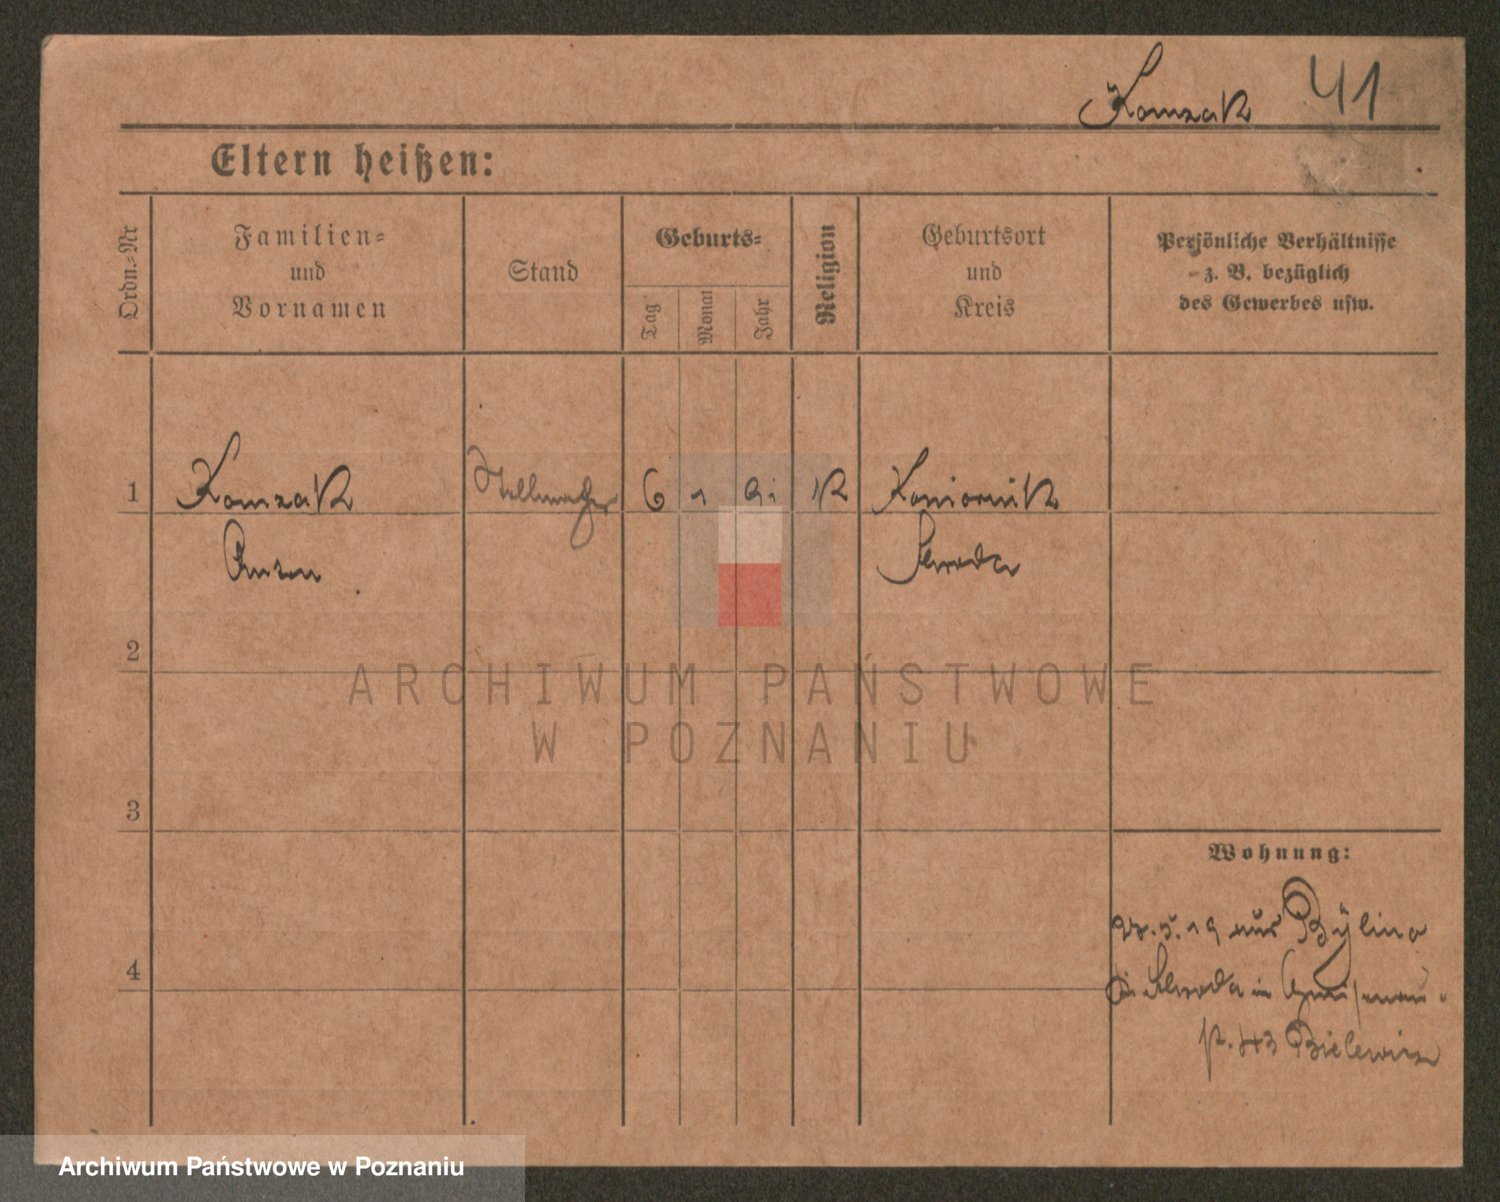 Komzak 41
Eltern heißen:
Ordn.-Nr
Familien-
und
Vornamen
Stand
Geburts-
Tag
Monat
Jahr
Religion
Geburtsort
und
Kreis
Persönliche Verhältnisse
z. B. bezüglich
des Gewerbes usw.
1 Komzak Stellmacher 6 1 91 K Koniornik
Anton Schroda
2
3
Wohnung:
5. 19 aus Bylina
4
Schroda in
43 Bielewicz
ARCHIWUM PAŃSTWOWE
W POZNANIU
Archiwum Państwowe w Poznaniu